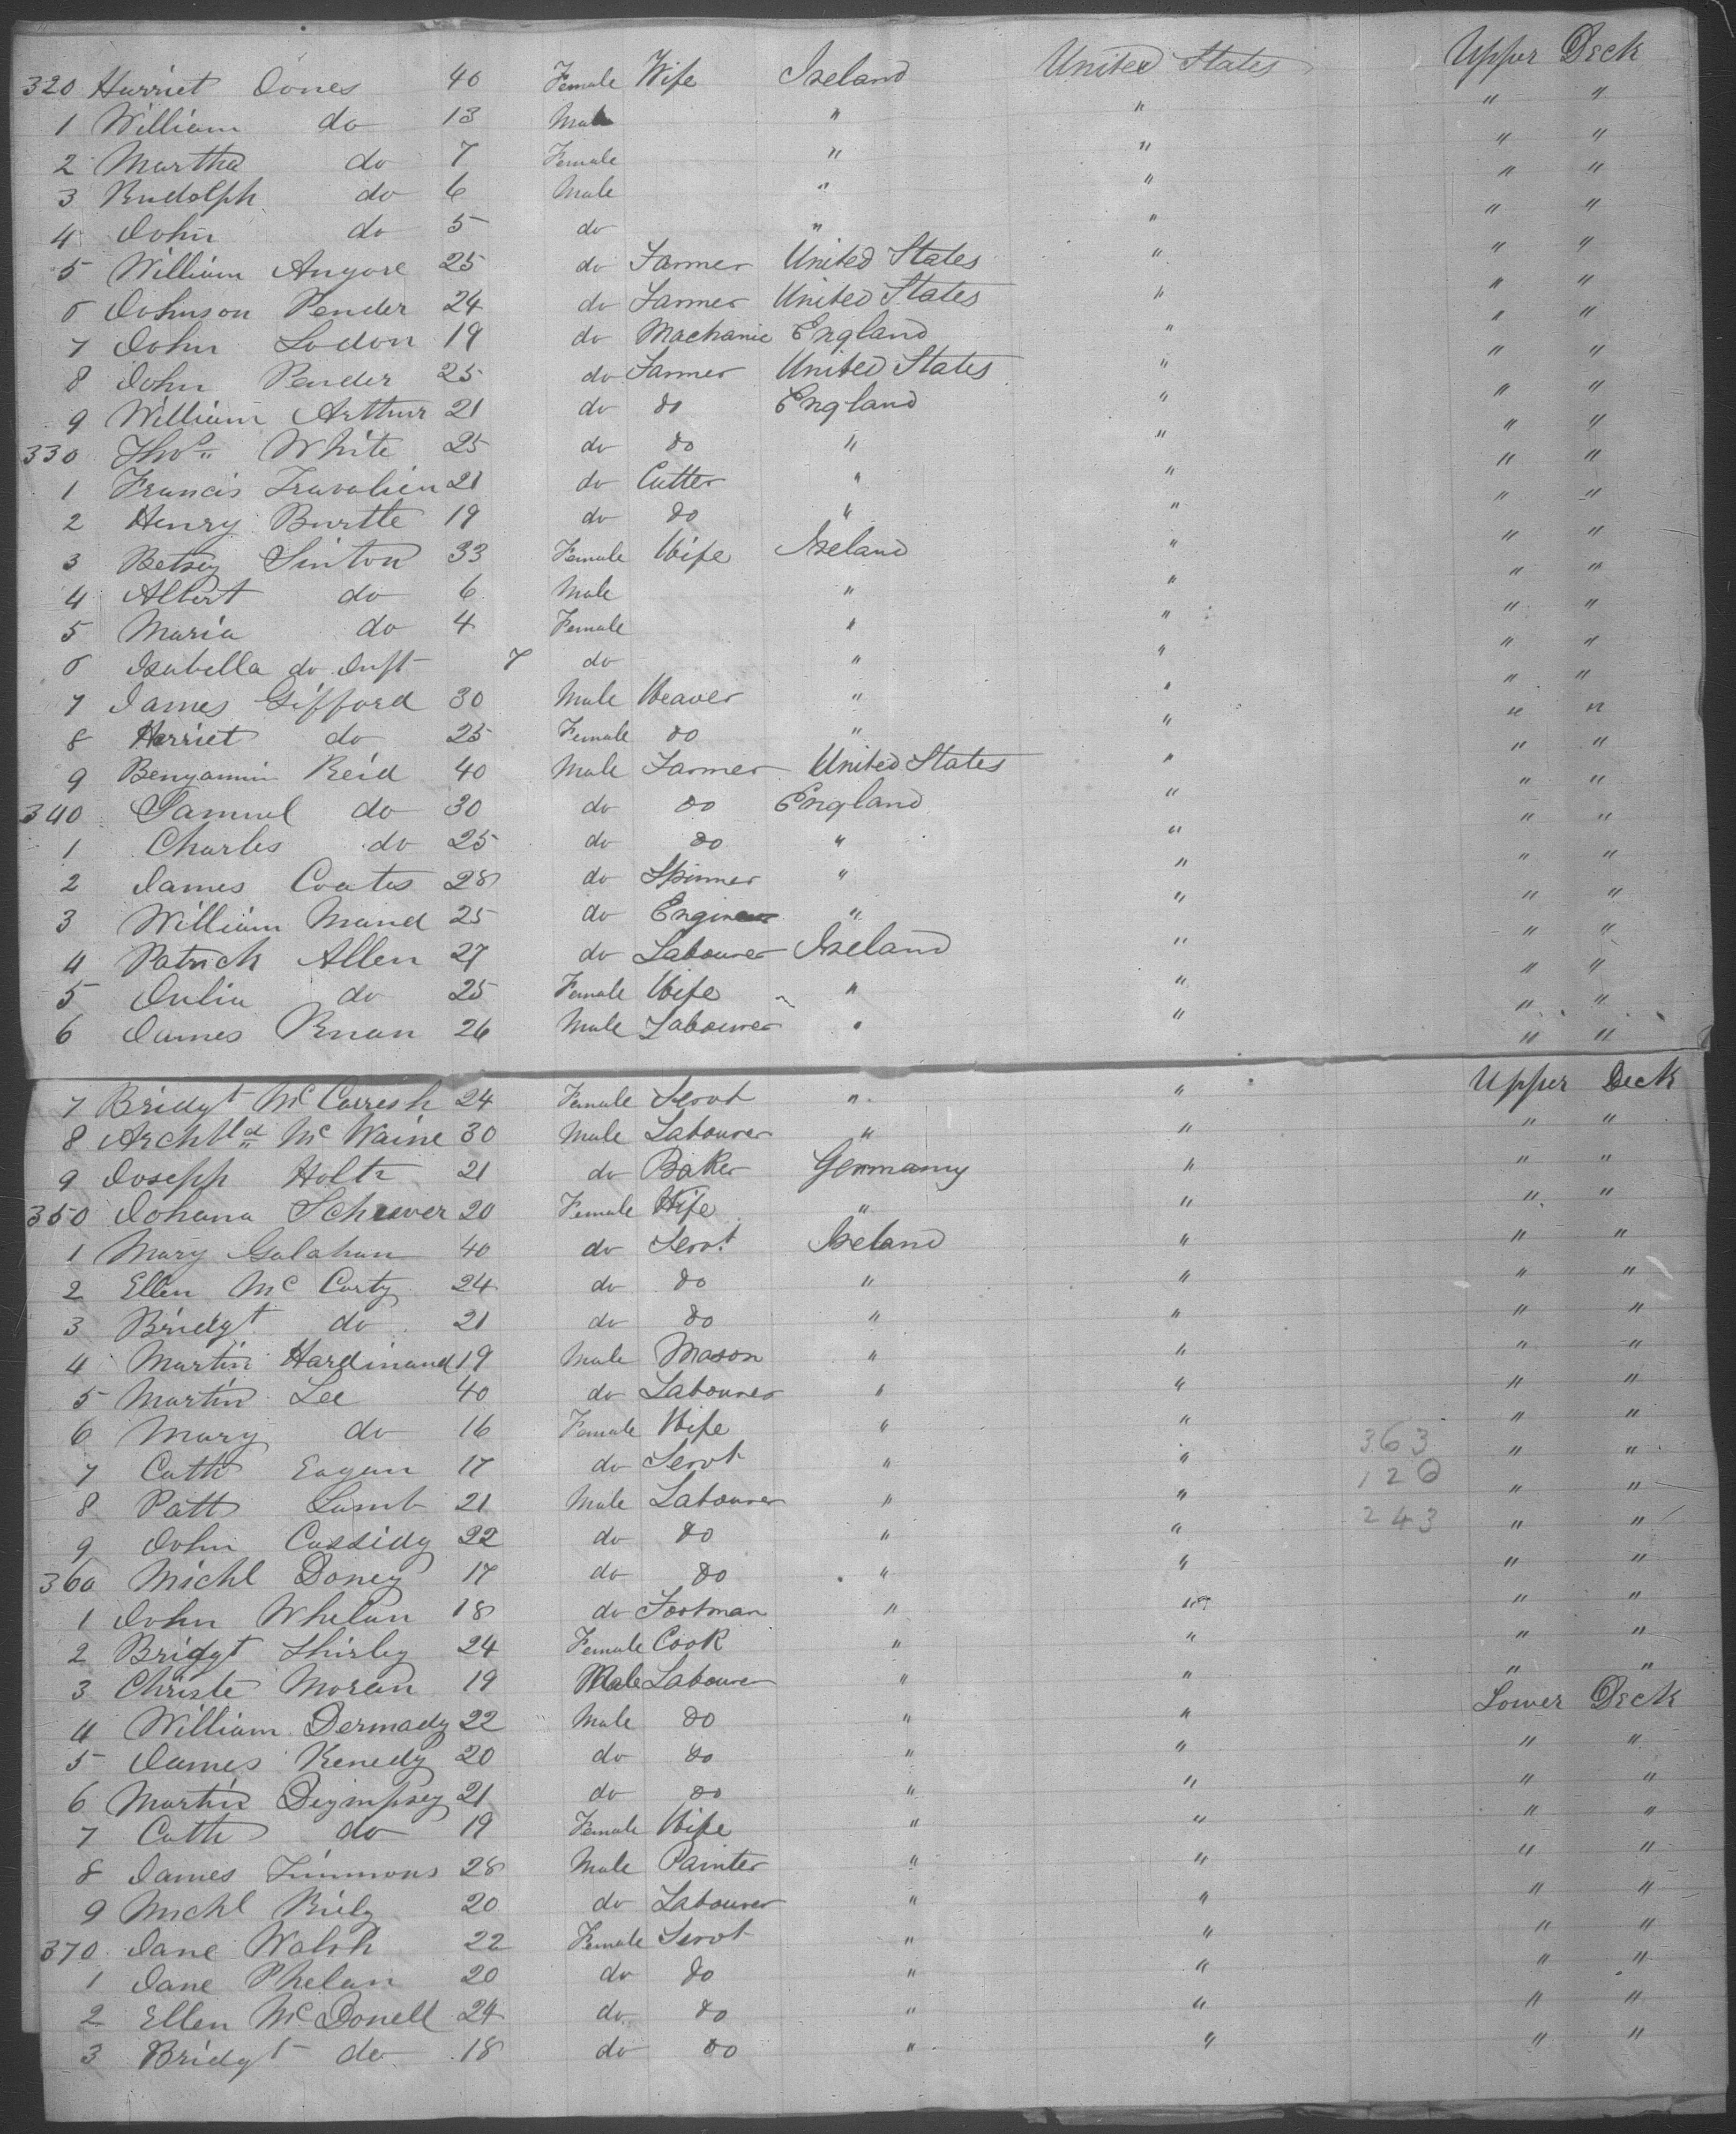 320 Harriet Jones 40 Female Wife Ireland United States Upper Deck
1 William do 13 Male " " " "
2 Martha do 7 Female " " " "
3 Rudolph do 6 Male " " " "
4 John do 5 do " " " "
5 William Angore 25 do Farmer United States " " "
6 Johnson Pender 24 do Farmer United States " " "
7 John Lodon 19 do Machanic England " " "
8 John Pender 25 do Farmer United States " " "
9 William Arthur 21 do do England " " "
330 Thos White 25 do do " " " "
1 Francis 21 do Cutter " " " "
2 Henry Burtle 19 do do " " " "
3 Betsey Sinton 33 Female Wife Ireland " " "
4 Albert do 6 Male " " " "
5 Maria do 4 Female " " " "
6 Isabella do Inft 7 do " " " "
7 James Gifford 30 Male Weaver " " " "
8 Harriet do 25 Female do " " " "
9 Benyamin Reid 40 Male Farmer United States " " "
340 Samuel do 30 do do England " " "
1 Charles do 25 do do " " " "
2 James Coates 28 do Spinner " " " "
3 William Mand 25 do Engineer " " " "
4 Patrick Allen 27 do Labourer Ireland " " "
5 Julia do 25 Female Wife " " " "
6 James Ruan 26 Male Labourer " " " "
7 Bridgt 24 Female Servt " " Upper Deck
8 Archbld Mc Waine 30 Male Labourer " " " "
9 Joseph Holtz 21 do Baker Germany " " "
350 Johana Schewer 20 Female Wife " " " "
1 Mary Galahan 40 do Servt Ireland " " "
2 Ellen Mc Carty 24 do do " " " "
3 Bridgt do 21 do do " " " "
4 Martin Hardinand 19 Male Mason " " " "
5 Martin Lee 40 do Labourer " " " "
6 Mary do 16 Female Wife " " 363 " "
7 Cath Eagan 17 do Servt " " 120 " "
8 Patt Lamb 21 Male Labourer " " 243 " "
9 John Cassidy 22 do do " " " "
360 Michl Doney 17 do do " " " "
1 John Whelan 18 do Footman " " " "
2 Bridgt Shirley 24 Female Cook " " " "
3 Christe Moran 19 Male Labourer " " " "
4 William Dermady 22 Male do " " Lower Deck
5 James Kenedy 20 do do " " " "
6 Martin Deympsey 21 do do " " " "
7 Cath do 19 Female Wife " " " "
8 James Timmons 28 Male Painter " " " "
9 Michl Riely 20 do Labourer " " " "
370 Jane Walsh 22 Female Servt " " " "
1 Jane Phelan 20 do do " " " "
2 Ellen Mc Donell 24 do do " " " "
3 Bridgt do 18 do do " " " "